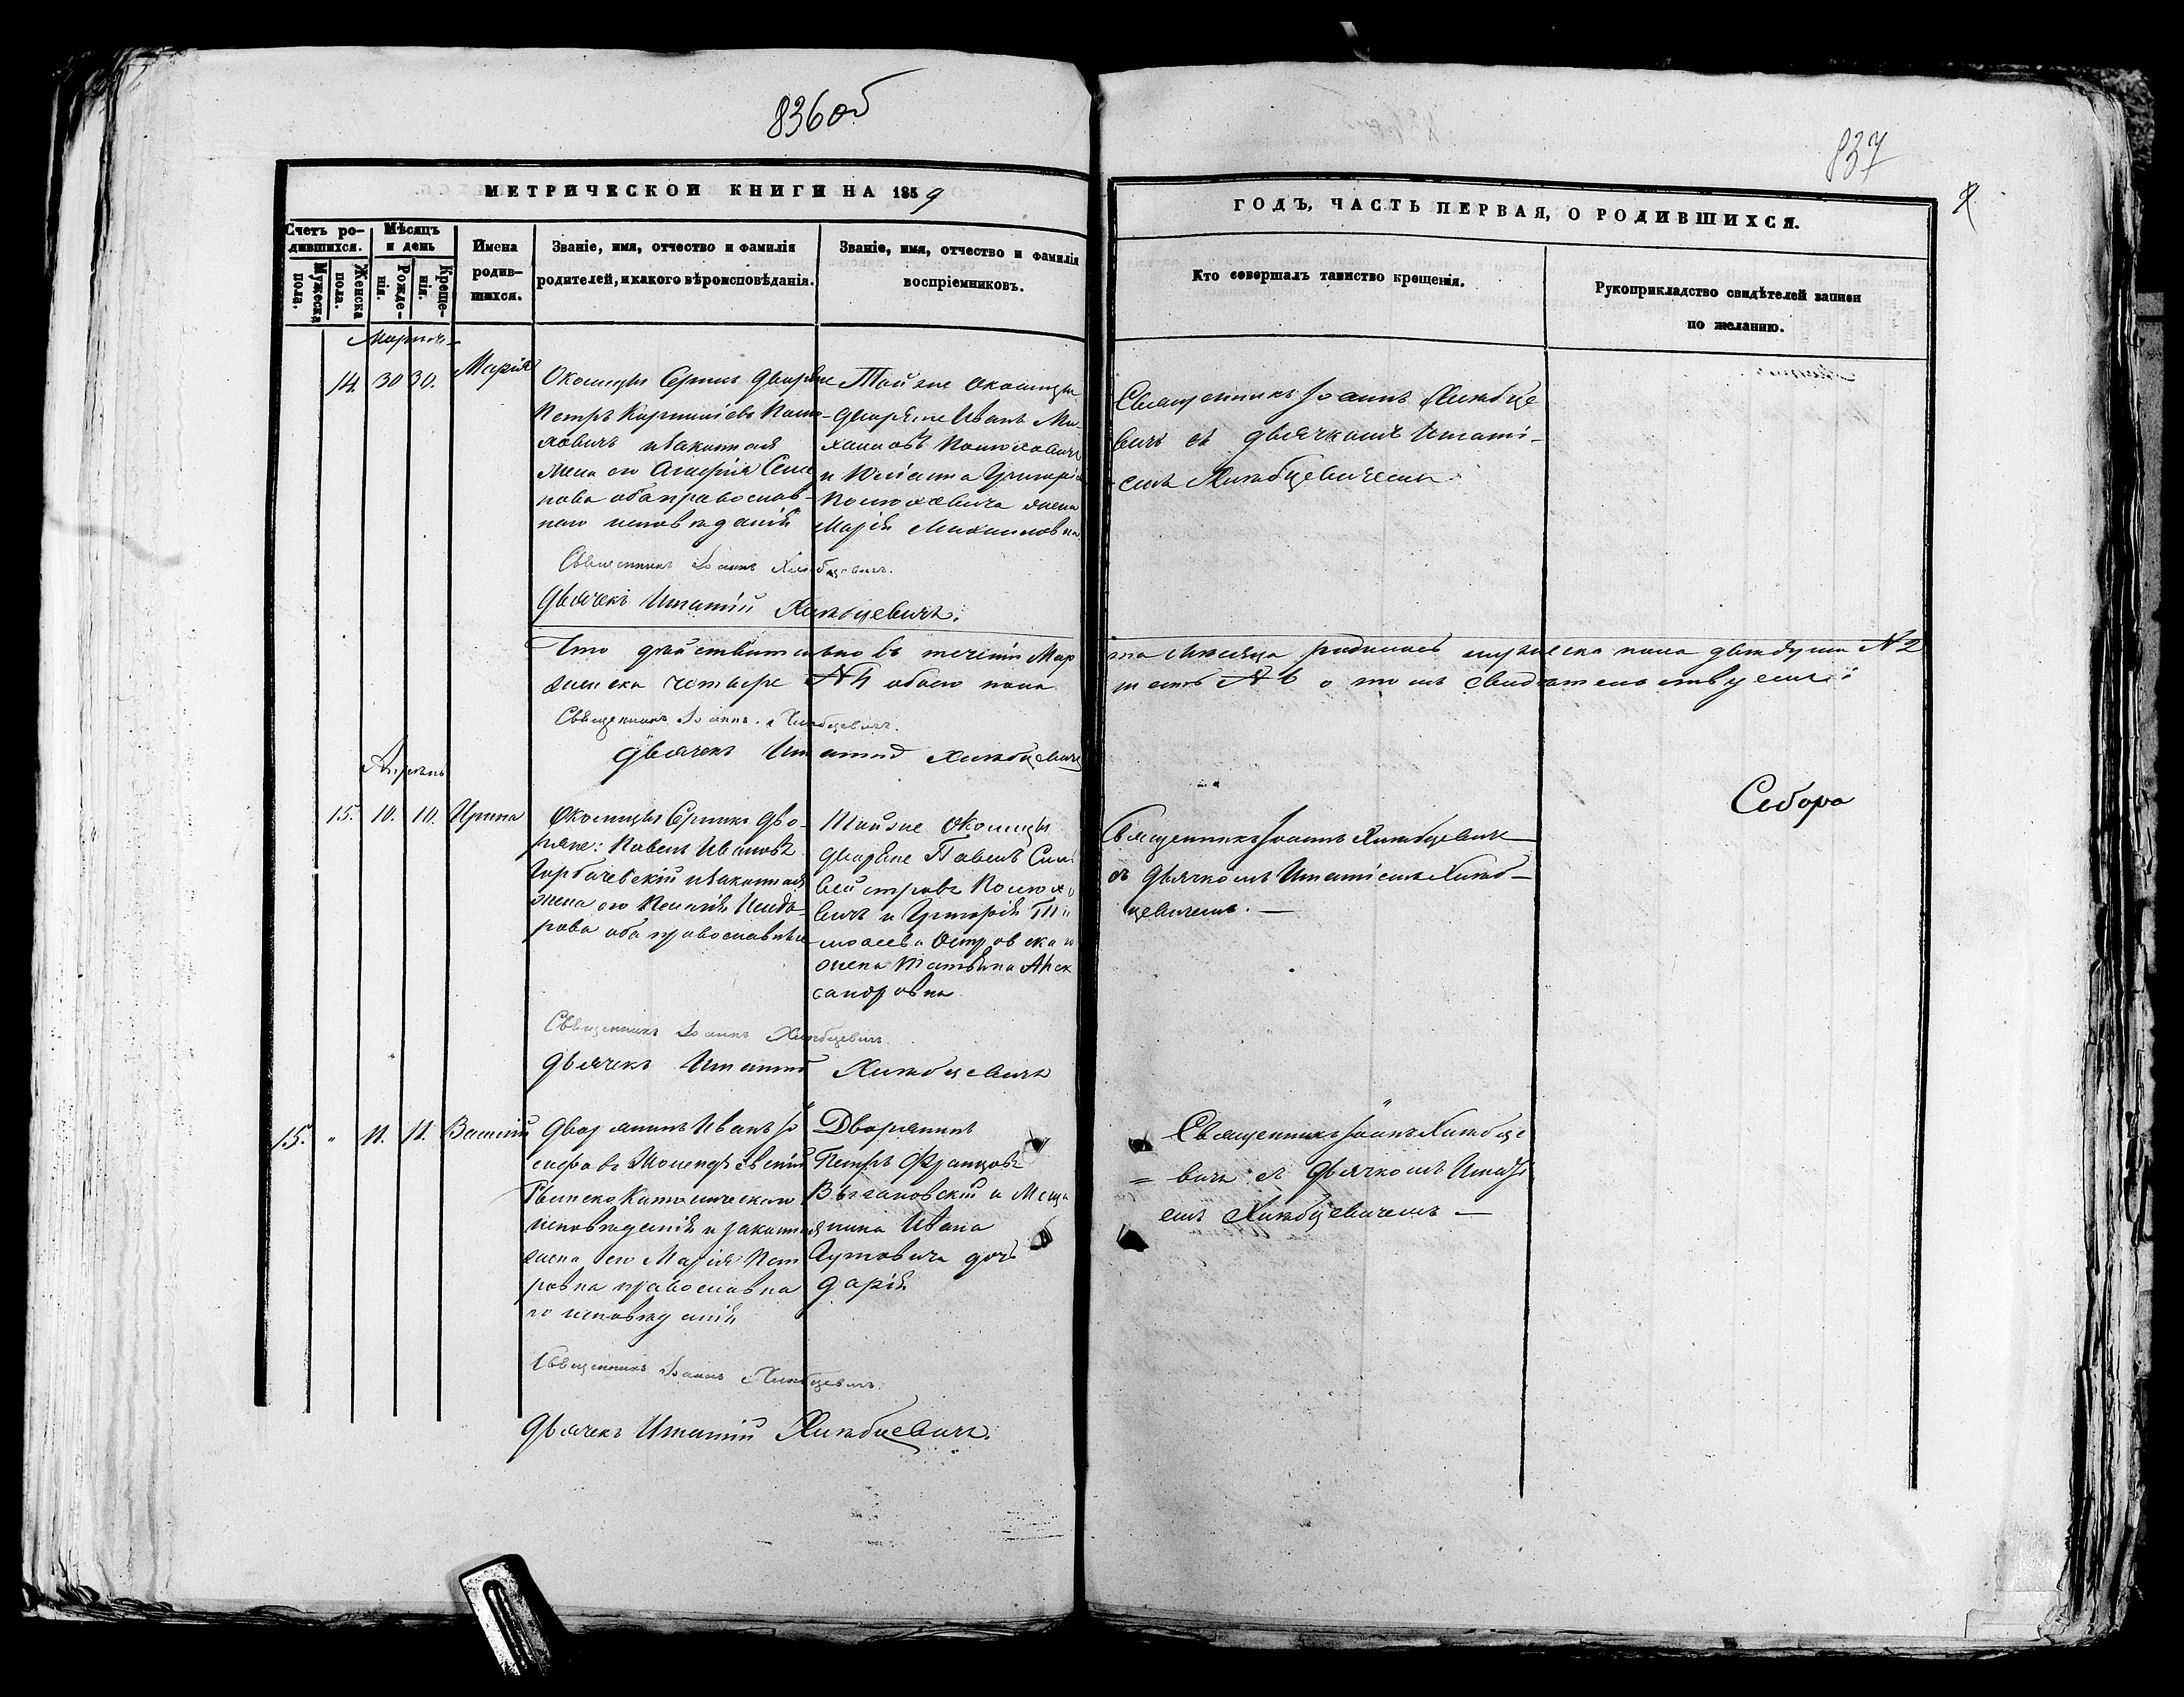 836об
837
МЕТРИЧЕСКОЙ КНИГИ НА 1859
ГОДЪ, ЧАСТЬ ПЕРВАЯ, О РОДИВШИХСЯ.
Счетъ ро-
дившихся.
Мужеска
пола.
Женска
пола.
Мѣсяцъ
и день
Рожде-
нія.
Креще-
нія.
Имена
родив-
шихся.
Званіе, имя, отчество и фамилія
родителей, и какого вѣроисповѣданія.
Званіе, имя, отчество и фамилія
воспріемниковъ.
Кто совершалъ таинство крещенія.
Рукоприкладство свидѣтелей записи
по желанію.
Мартъ
14. 30 30. Марія
Околицы Дворяне
Петръ
ховичъ и законная
жена его Семе
нова оба православ-
наго исповѣданія
Той же околицы
дворяне Иванъ Ми-
хайловъ
и Григорія
жена
Марія Михайловна
Священникъ Іоаннъ Хлѣбце
вичъ съ дьячкомъ Игнаті-
емъ Хлѣбцевичемъ
Священникъ Іоаннъ Хлѣбцевичъ.
Дьячекъ Игнатій Хлѣбцевичъ.
Что дѣйствительно въ теченіи Мар
та мѣсяца родилось мужеска пола двѣ души № 2
женска четыре № 4 обоего пола
шесть № 6 о томъ свидѣтельствуемъ:
Священникъ Іоаннъ Хлѣбцевичъ.
Дьячекъ Игнатій Хлѣбцевичъ
Апрѣль
15. 10. 10. Ирина
Околицы Дво-
ряне: Павелъ Ивановъ
Горбачевскій и законная
жена его
рова оба православные
Той же Околицы
дворяне Павелъ Силь
вестровъ
вичъ и Григорія Ти
моѳеева Островскаго
жена Татьяна Алек
сандровна
Священникъ Іоаннъ Хлѣбцевичъ
съ Дьячкомъ Игнатіемъ Хлѣб-
цевичемъ. —
Священникъ Іоаннъ Хлѣбцевичъ
Дьячекъ Игнатій Хлѣбцевичъ
15. " 11. 11. Василій
Дворянинъ Иванъ Іо
сифовъ
Римско Католическаго
исповѣданія и законная
жена его Марія Пет
ровна православна
го исповѣданія
Дворянинъ
Петръ Францовъ
и Мѣща
нина Ивана
дочь
Дарія
Священникъ Іоаннъ Хлѣбце
= вичъ съ Дьячкомъ Игнаті
емъ Хлѣбцевичемъ —
Священникъ Іоаннъ Хлѣбцевичъ.
Дьячекъ Игнатій Хлѣбцевичъ.